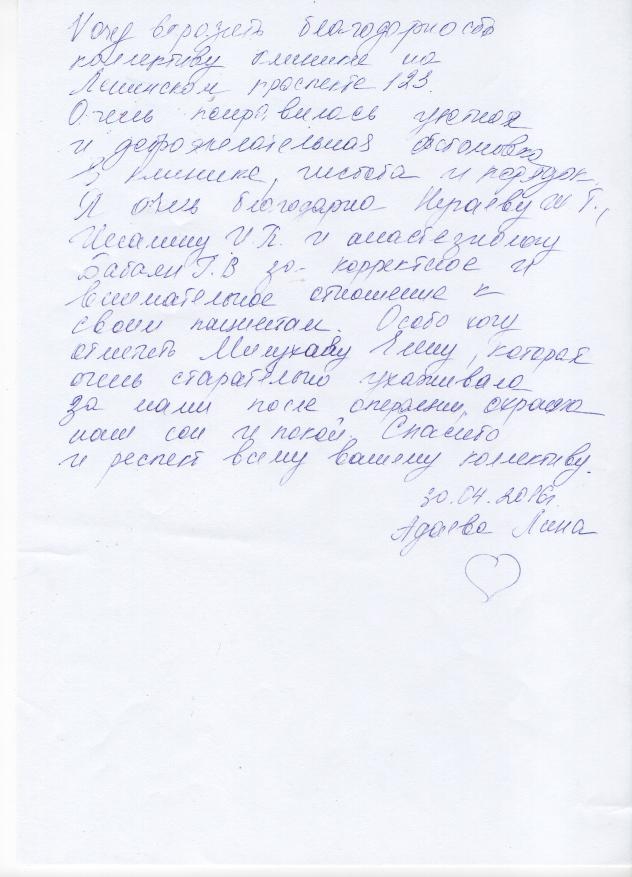 Хочу выразить благодарность
коллективу клиники на
Ленинском проспекте 123.
Очень понравилась уютная
и доброжелательная обстановка
в клинике, чистота и порядок.
Я очень благодарна Ш Г.,
И.К. и анастезиологу
Бабаян Г.В за корректное и
внимательное отношение к
своим пациентам. Особо хочу
отметить Елену, которая
очень старательно ухаживала
за нами после операции, охраняя
наш сон и покой. Спасибо
и респект всему вашему коллективу.
30.04.2016г.
Адаева Лина